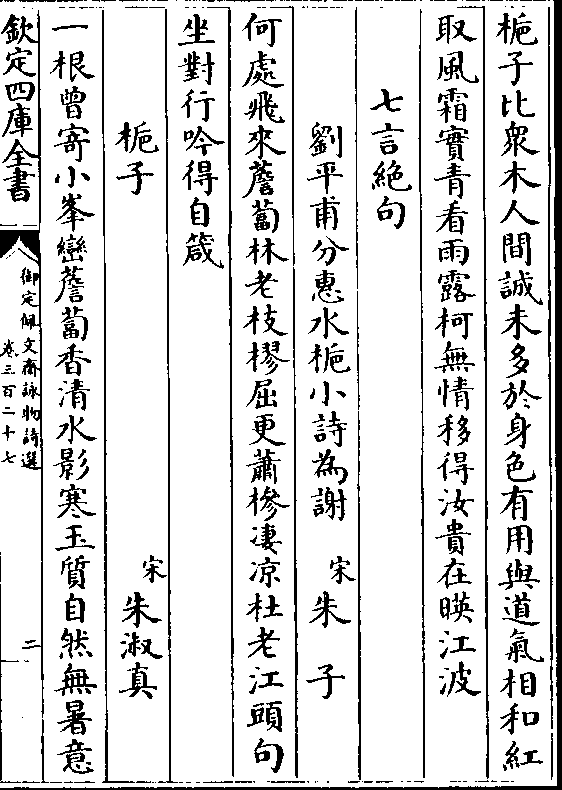 梔子比衆木人間誠未多於身色有用與道氣相和紅
取風霜實青看雨露柯無情移得汝貴在暎江波
七言絶句
劉平甫分惠水梔小詩為謝 宋朱子
何處飛來薝蔔林老枝樛屈更蕭槮淒凉杜老江頭句
坐對行吟得自箴
梔子 宋朱淑真
一根曾寄小峯巒薝蔔香清水影寒玉質自然無暑意
欽定四庫全書
御定佩文齋詠物詩選
卷三百二十七
二